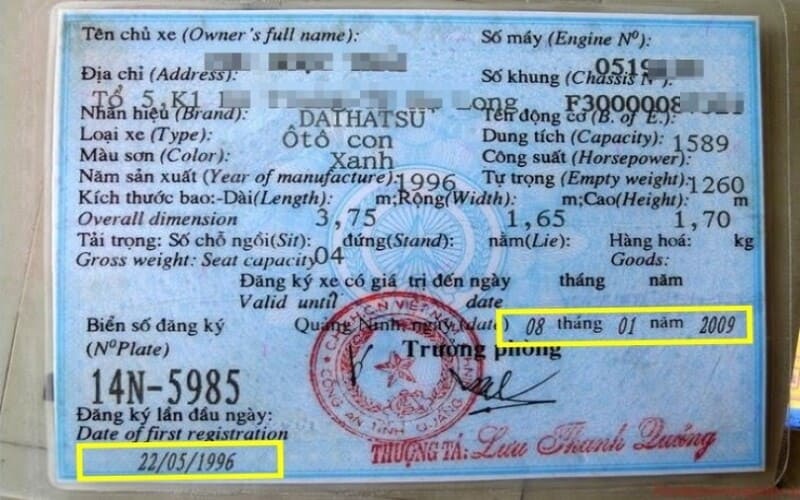 Tên chủ xe (Owner's full name): Số máy (Engine Nº):
Địa chỉ (Address): 0519
Số khung (Chassis Nº):
Tổ 5, K1 Long F3000008
Nhãn hiệu (Brand): DAIHATSU Tên động cơ (B. of E.):
Loại xe (Type): Ôtô con Dung tích (Capacity): 1589
Màu sơn (Color): Xanh Công suất (Horsepower):
Năm sản xuất (Year of manufacture): 1996 Tự trọng (Empty weight): 1260
Kích thước bao:-Dài(Length): m;Rộng(Width): m;Cao(Height): m
Overall dimension 3,75 1,65 1,70
Tải trọng: Số chỗ ngồi(Sit): đứng(Stand): nằm(Lie): Hàng hoá: kg
Gross weight: Seat capacity 04 Goods:
Đăng ký xe có giá trị đến ngày tháng năm
Valid until date
Biển số đăng ký Quảng Ninh, ngày (date) 08 tháng 01 năm 2009
(NºPlate) Trưởng phòng
14N-5985
Đăng ký lần đầu ngày:
Date of first registration
22/05/1996
CÔNG AN TỈNH QUẢNG NINH
THƯỢNG TÁ: Lưu Thanh Dưỡng